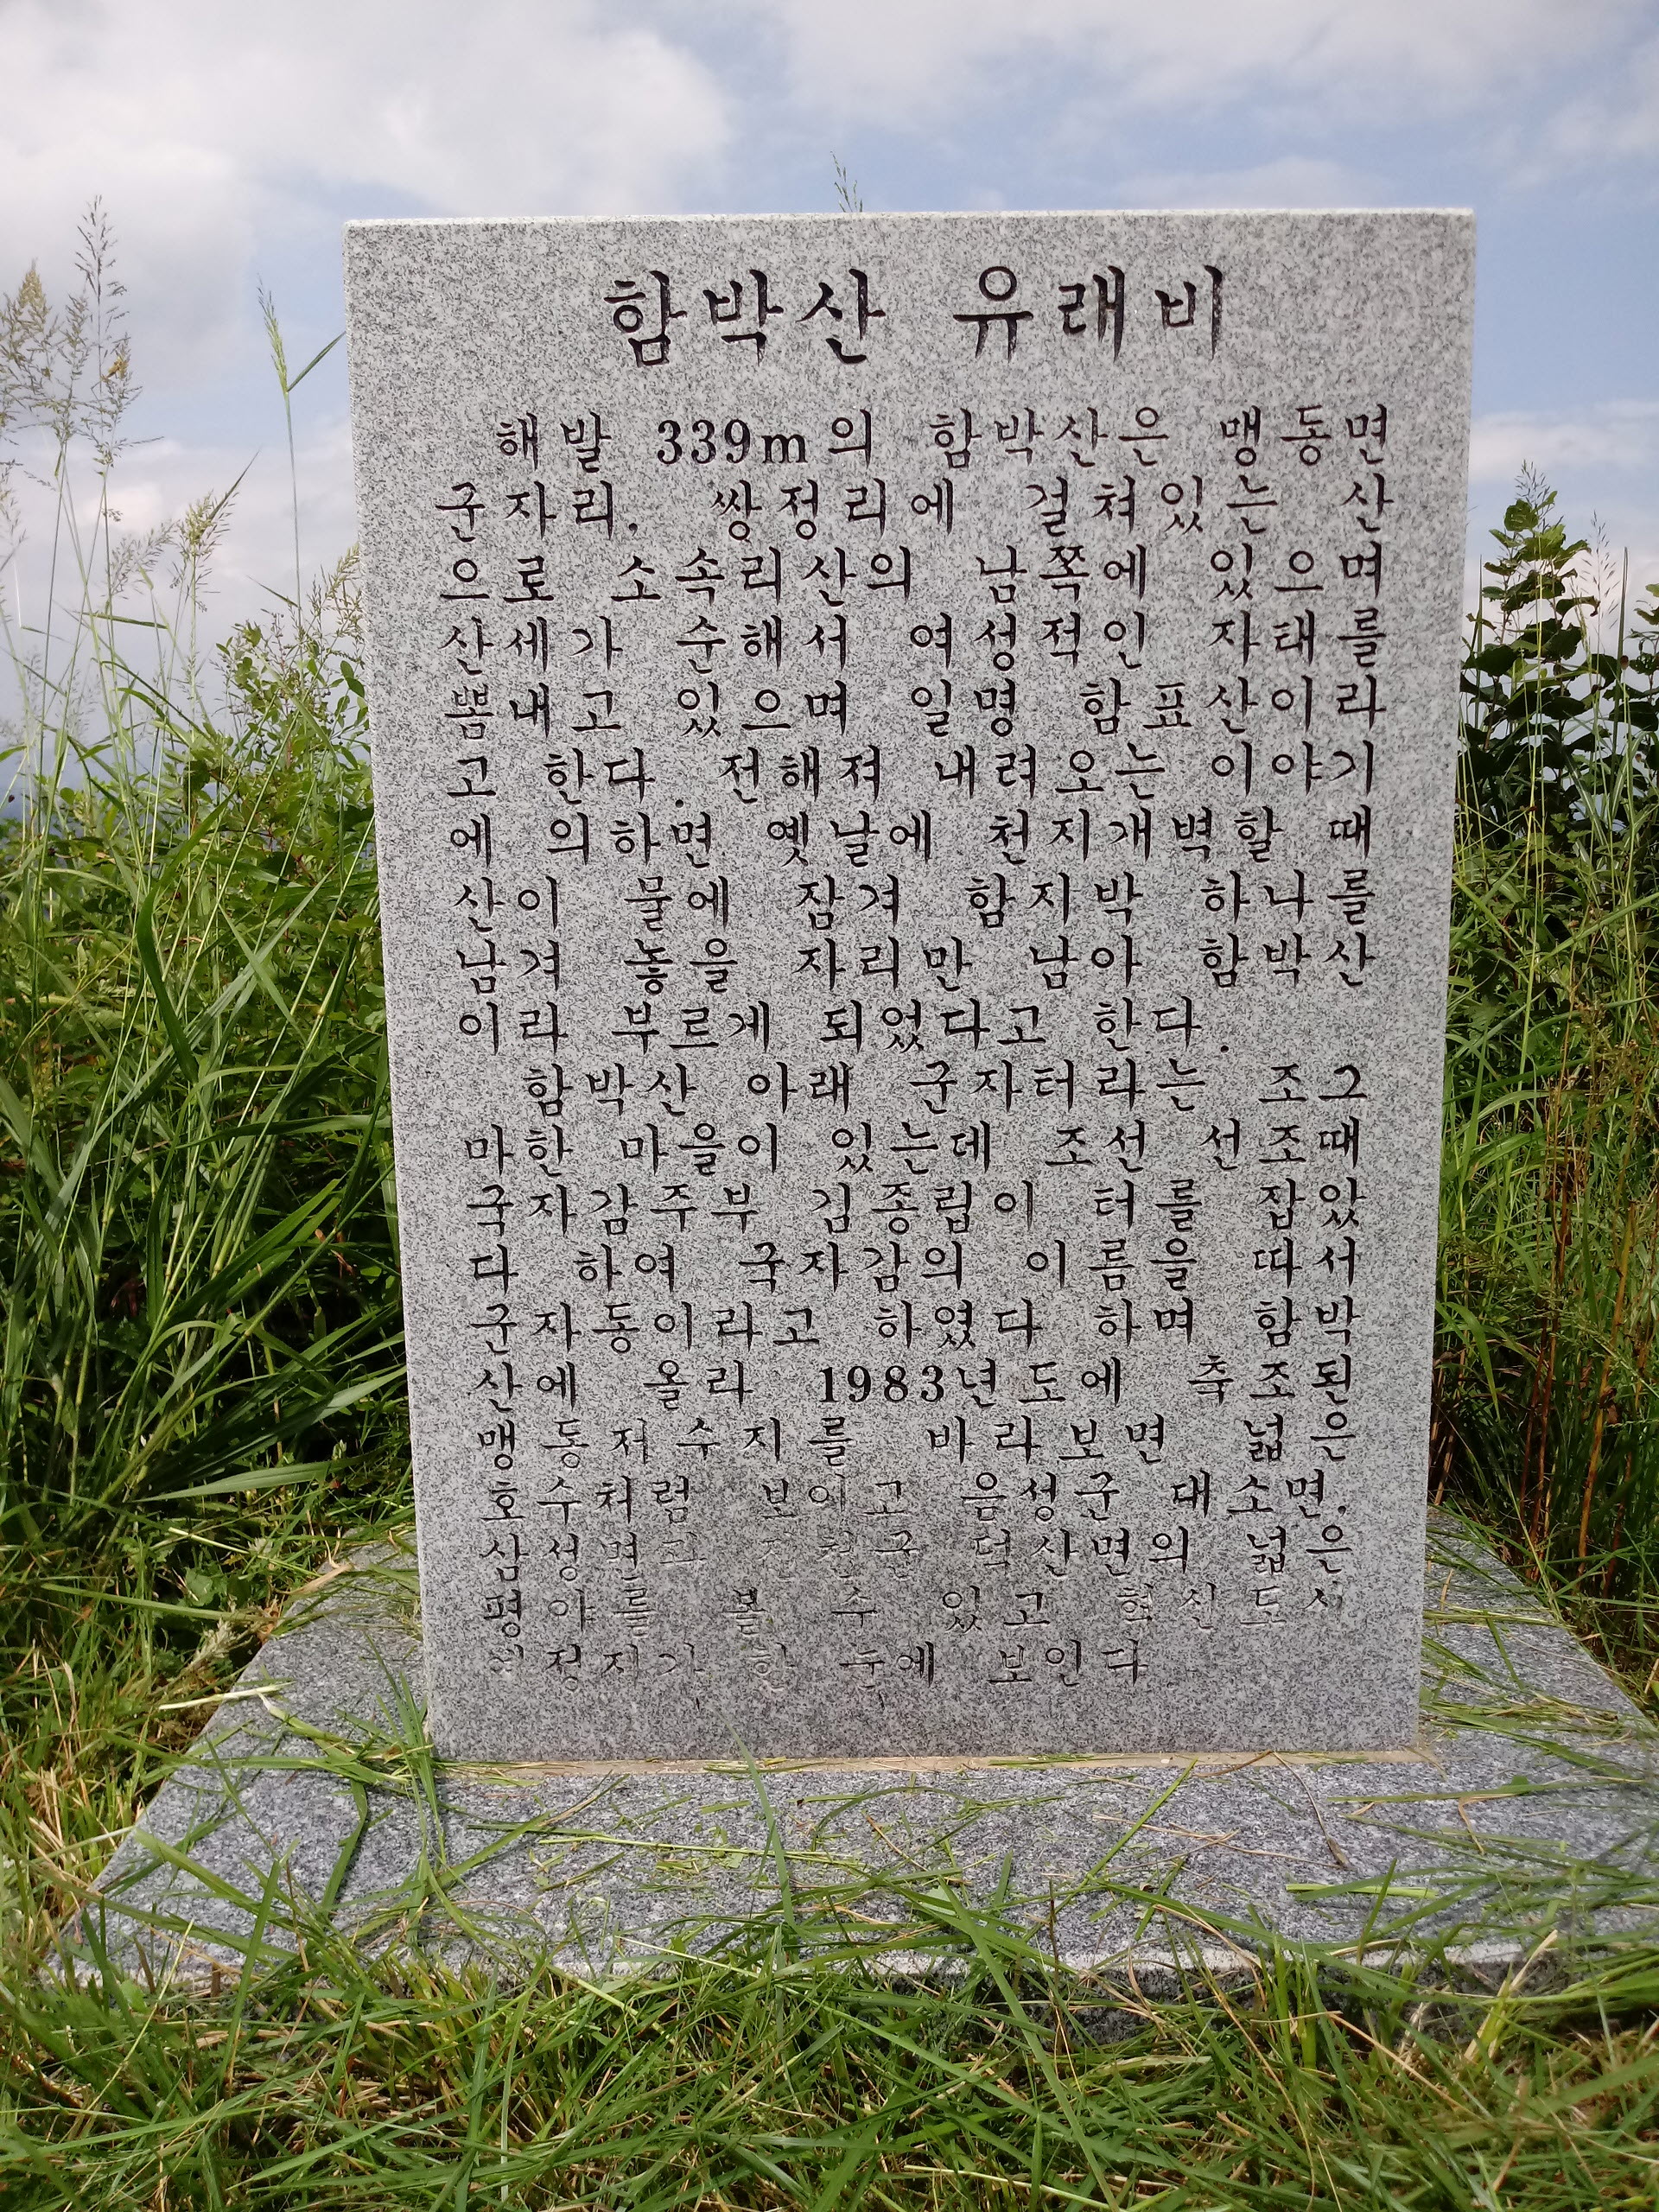 함박산 유래비
해발 339m의 함박산은 맹동면
군자리, 쌍정리에 걸쳐있는 산
으로 소속리산의 남쪽에 있으며
산세가 순해서 여성적인 자태를
뽐내고 있으며 일명 함표산이라
고 한다. 전해져 내려오는 이야기
에 의하면 옛날에 천지개벽할 때
산이 물에 잠겨 함지박 하나를
남겨 놓을 자리만 남아 함박산
이라 부르게 되었다고 한다.
함박산 아래 군자터라는 조그
마한 마을이 있는데 조선 선조때
국자감주부 김종립이 터를 잡았
다 하여 국자감의 이름을 따서
군자동이라고 하였다 하며 함박
산에 올라 1983년도에 축조된
맹동저수지를 바라보면 넓은
호수처럼 보이고 음성군 대소면,
삼성면과 진천군 덕산면의 넓은
평야를 볼 수 있고 혁신도시
한 눈에 보인다